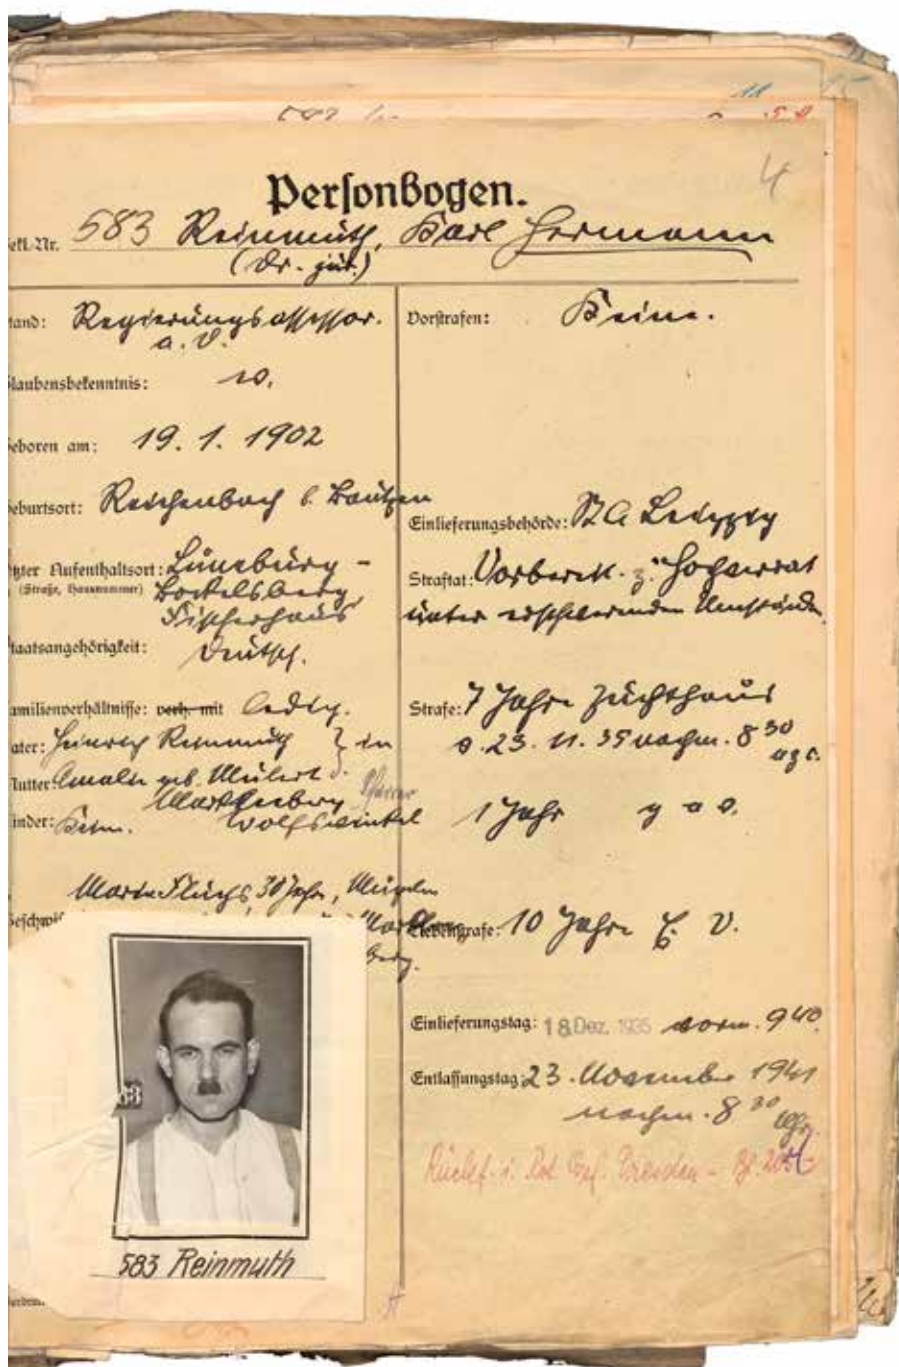 11
5.8
4
Personbogen.
efl. Nr. 583 Reinmuth, Karl Hermann
(Dr. jur.)
tand: Regierungsassessor.
a. D.
Glaubensbekenntnis:
eboren am: 19. 1. 1902
eburtsort: Reichenbach b. Bautzen
tzter Aufenthaltsort: Lüneburg -
(Straße, Hausnummer) Bockelsberg,
Fischerhaus
taatsangehörigkeit: Deutsch.
amilienverhältnisse: verh. mit ledig.
ater: Heinrich Reinmuth } in
Mutter: Amalie geb.
Markkleeberg
inder: Kein.
Maria 30 Jahre, Mügeln
Geschwi
583 Reinmuth
Vorstrafen: Keine.
Einlieferungsbehörde: St A Leipzig
Straftat: Vorbereit. z. Hochverrat
unter erschwerenden Umständen
Strafe: 7 Jahre Zuchthaus
23. 11. 35 nachm. 8 30
1 Jahr
Nebenstrafe: 10 Jahre E. V.
Einlieferungstag: 18 Dez. 1935 vorm. 9 40.
Entlassungstag: 23. November 1941
nachm. 8 30 Uhr.
Dresden -